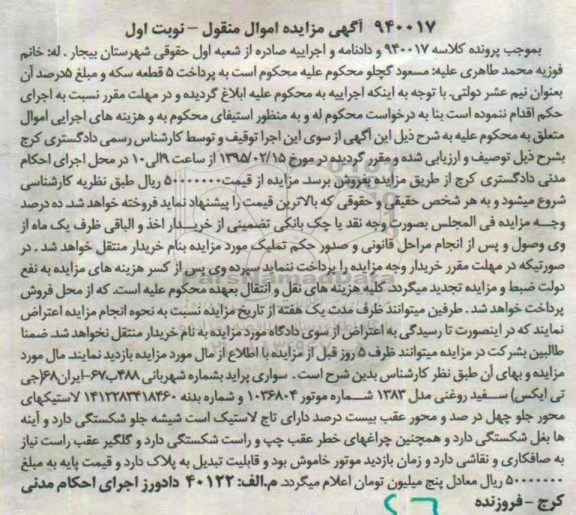 ۹۴۰۰۱۷ آگهی مزایده اموال منقول – نوبت اول
بموجب پرونده کلاسه ۹۴۰۰۱۷ و دادنامه و اجراییه صادره از شعبه اول حقوقی شهرستان بیجار . له: خانم
فوزیه محمد طاهری علیه: مسعود گچلو محکوم علیه محکوم است به پرداخت ۵ قطعه سکه و مبلغ ۵درصد آن
بعنوان نیم عشر دولتی. با توجه به اینکه اجراییه به محکوم علیه ابلاغ گردیده و در مهلت مقرر نسبت به اجرای
حکم اقدام ننموده است بنا به درخواست محکوم له و به منظور استیفای محکوم به و هزینه های اجرایی اموال
متعلق به محکوم علیه به شرح ذیل این آگهی از سوی این اجرا توقیف و توسط کارشناس رسمی دادگستری کرج
بشرح ذیل توصیف و ارزیابی شده و مقرر گردیده در مورخ ۱۳۹۵/۰۲/۱۵ از ساعت ۹الی۱۰ در محل اجرای احکام
مدنی دادگستری کرج از طریق مزایده بفروش برسد. مزایده از قیمت۵۰۰۰۰۰۰۰ ریال طبق نظریه کارشناسی
شروع میشود و به هر شخص حقیقی و حقوقی که بالاترین قیمت را پیشنهاد نماید فروخته خواهد شد. ده درصد
وجه مزایده فی المجلس بصورت وجه نقد یا چک بانکی تضمینی از خریدار اخذ و الباقی ظرف یک ماه از
وی وصول و پس از انجام مراحل قانونی و صدور حکم تملیک مورد مزایده بنام خریدار منتقل خواهد شد . در
صورتیکه در مهلت مقرر خریدار وجه مزایده را پرداخت ننماید سپرده وی پس از کسر هزینه های مزایده به نفع
دولت ضبط و مزایده تجدید میگردد. کلیه هزینه های نقل و انتقال بعهده محکوم علیه است. که از محل فروش
پرداخت خواهد شد . طرفین میتوانند ظرف مدت یک هفته از تاریخ مزایده نسبت به نحوه انجام مزایده اعتراض
نمایند که در اینصورت تا رسیدگی به اعتراض از سوی دادگاه مورد مزایده به نام خریدار منتقل نخواهد شد. ضمنا
طالبین بشرکت در مزایده میتوانند ظرف ۵ روز قبل از مزایده با اطلاع از مال مورد مزایده بازدید نمایند. مال مورد
مزایده و بهای آن طبق نظر کارشناس بدین شرح است . سواری پراید بشماره شهربانی ۴۸۸ب۶۷-ایران۶۸(جی
تی ایکس) سفید روغنی مدل ۱۳۸۳ شماره موتور ۱۰۳۶۸۰۴ و شماره بدنه ۱۴۱۲۲۸۳۴۱۸۴۶۰ لاستیکهای
محور جلو چهل در صد و محور عقب بیست درصد دارای تاج لاستیک است شیشه جلو شکستگی دارد و آینه
ها بغل شکستگی دارد و همچنین چراغهای خطر عقب چپ و راست شکستگی دارد و گلگیر عقب راست نیاز
به صافکاری و نقاشی دارد و زمان بازدید موتور خاموش بود و قابلیت تبدیل به پلاک دارد و قیمت پایه به مبلغ
۵۰۰۰۰۰۰۰ ریال معادل پنج میلیون تومان اعلام میگردد. م.الف: ۴۰۱۲۲ دادورز اجرای احکام مدنی
کرج – فروزنده